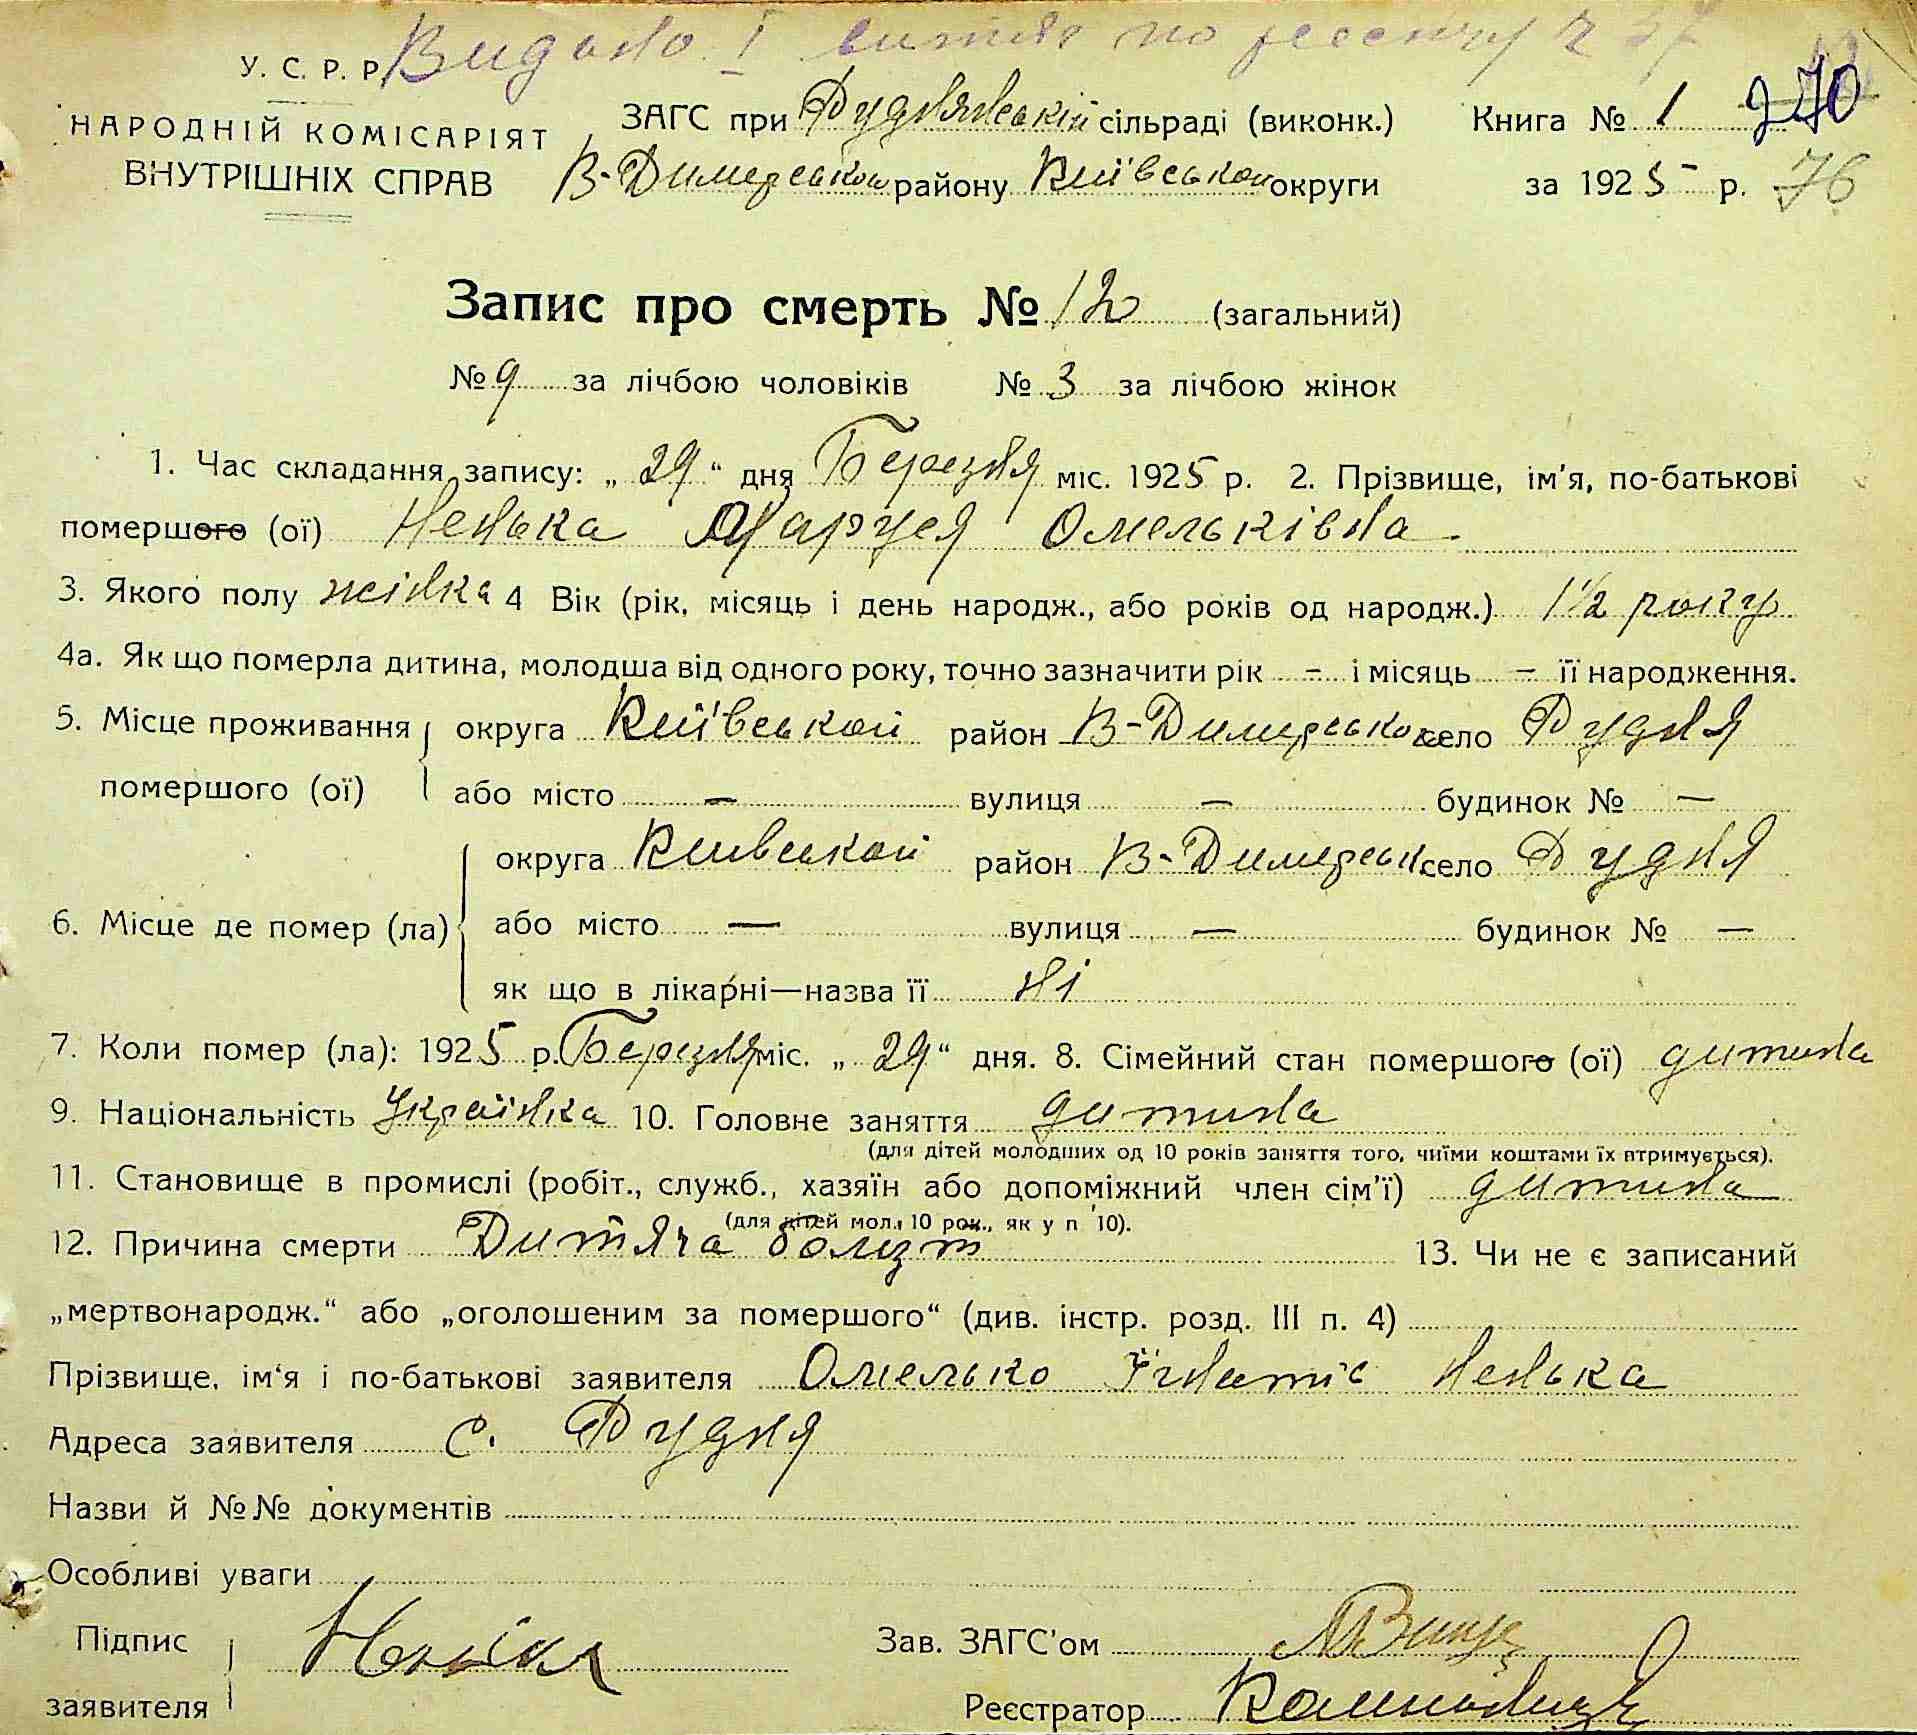 Видано I витяг по реєстру
У. С. Р. Р.
НАРОДНІЙ КОМІСАРІЯТ
ВНУТРІШНІХ СПРАВ
ЗАГС при Руднянській сільраді (виконк.) Книга № 1 270
В-Димерськои району Київськои округи за 1925 р. 76
Запис про смерть № 12 (загальний)
№ 9 за лічбою чоловіків № 3 за лічбою жінок
1. Час складання запису: „ 29 “ дня Березня міс. 1925 р. 2. Прізвище, ім'я, по-батькові
помершого (ої) Ненька Маруся Омельківна
3. Якого полу жінка 4 Вік (рік, місяць і день народж., або років од народж.) 1 1/2 року
4а. Як що померла дитина, молодша від одного року, точно зазначити рік – і місяць – її народження.
5. Місце проживання округа Київськой район В-Димерськои село Рудня
помершого (ої) або місто — вулиця — будинок № —
округа Киивськой район В-Димерськ село Рудня
6. Місце де помер (ла) або місто — вулиця — будинок № —
як що в лікарні—назва її ні
7. Коли помер (ла): 1925 р. Березня міс. „ 29 “ дня. 8. Сімейний стан помершого (ої) дитина
9. Національність Українка 10. Головне заняття дитина
(для дітей молодших од 10 років заняття того, чиїми коштами їх втримується).
11. Становище в промислі (робіт., служб., хазяїн або допоміжний член сім'ї) дитина
(для дітей мол. 10 рок., як у п 10).
12. Причина смерти Дитяча 13. Чи не є записаний
„мертвонародж.“ або „оголошеним за помершого“ (див. інстр. розд. III п. 4)
Прізвище, ім'я і по-батькові заявителя Омелько Ігнатіє Ненька
Адреса заявителя с. Рудня
Назви й №№ документів
Особливі уваги
Підпис
заявителя
Зав. ЗАГС'ом
Реєстратор